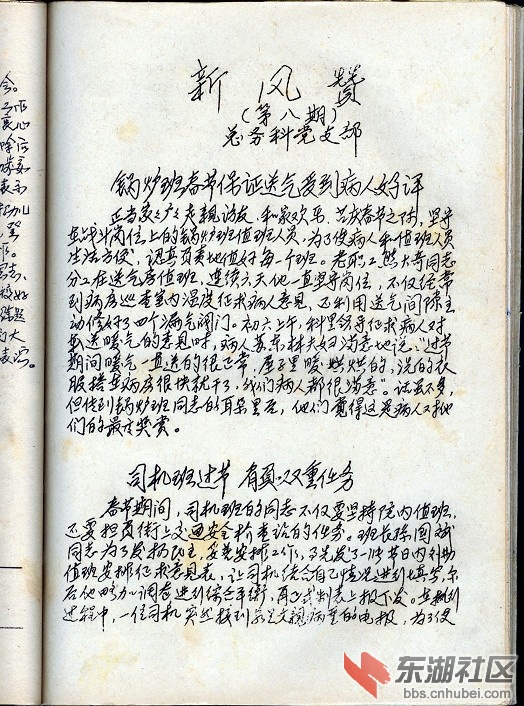 新风赞
(第八期)
总务科党支部
锅炉班春节保证送气受到病人好评
正当家家户户走亲访友,和家欢乐,共庆春节之际,坚守
在战斗岗位上的锅炉班值班人员,为了使病人和值班人员
生活方便,认真负责地值好每一个班。老职工熊大哥同志
分工在送气房值班,连续六天他一直坚守岗位,不仅经常
到病房巡查室内湿度征求病人意见,还利用送气间隙主
动修好了四个漏气阀门。初六上午,科里领导征求病人对
我送暖气的意见时,病人苏东林夫妇满意地说:"过节
期间暖气一直送的很正常,屋子里暖烘烘的,洗的衣
服搭在病房很快就干了,我们病人都很满意"。话虽不多,
但传到锅炉班同志的耳朵里后,他们觉得这是病人对他
们的最高奖赏。
司机班过节 肩负双重任务
春节期间,司机班的同志不仅要坚持院内值班,
还要担负街上交通安全检查站的任务。班长陈国斌
同志为了发扬民主,妥善安排工作,事先发了一份节日内外勤
值班安排征求意见表,让司机结合自己情况进行填写,尔
后他略加调整进行综合平衡,再正式制表上报下发。在执行
过程中,一位司机突然接到父亲病重的电报,为了使
今。
良心
除污
表示
东湖社区
bbs.cnhubei.com